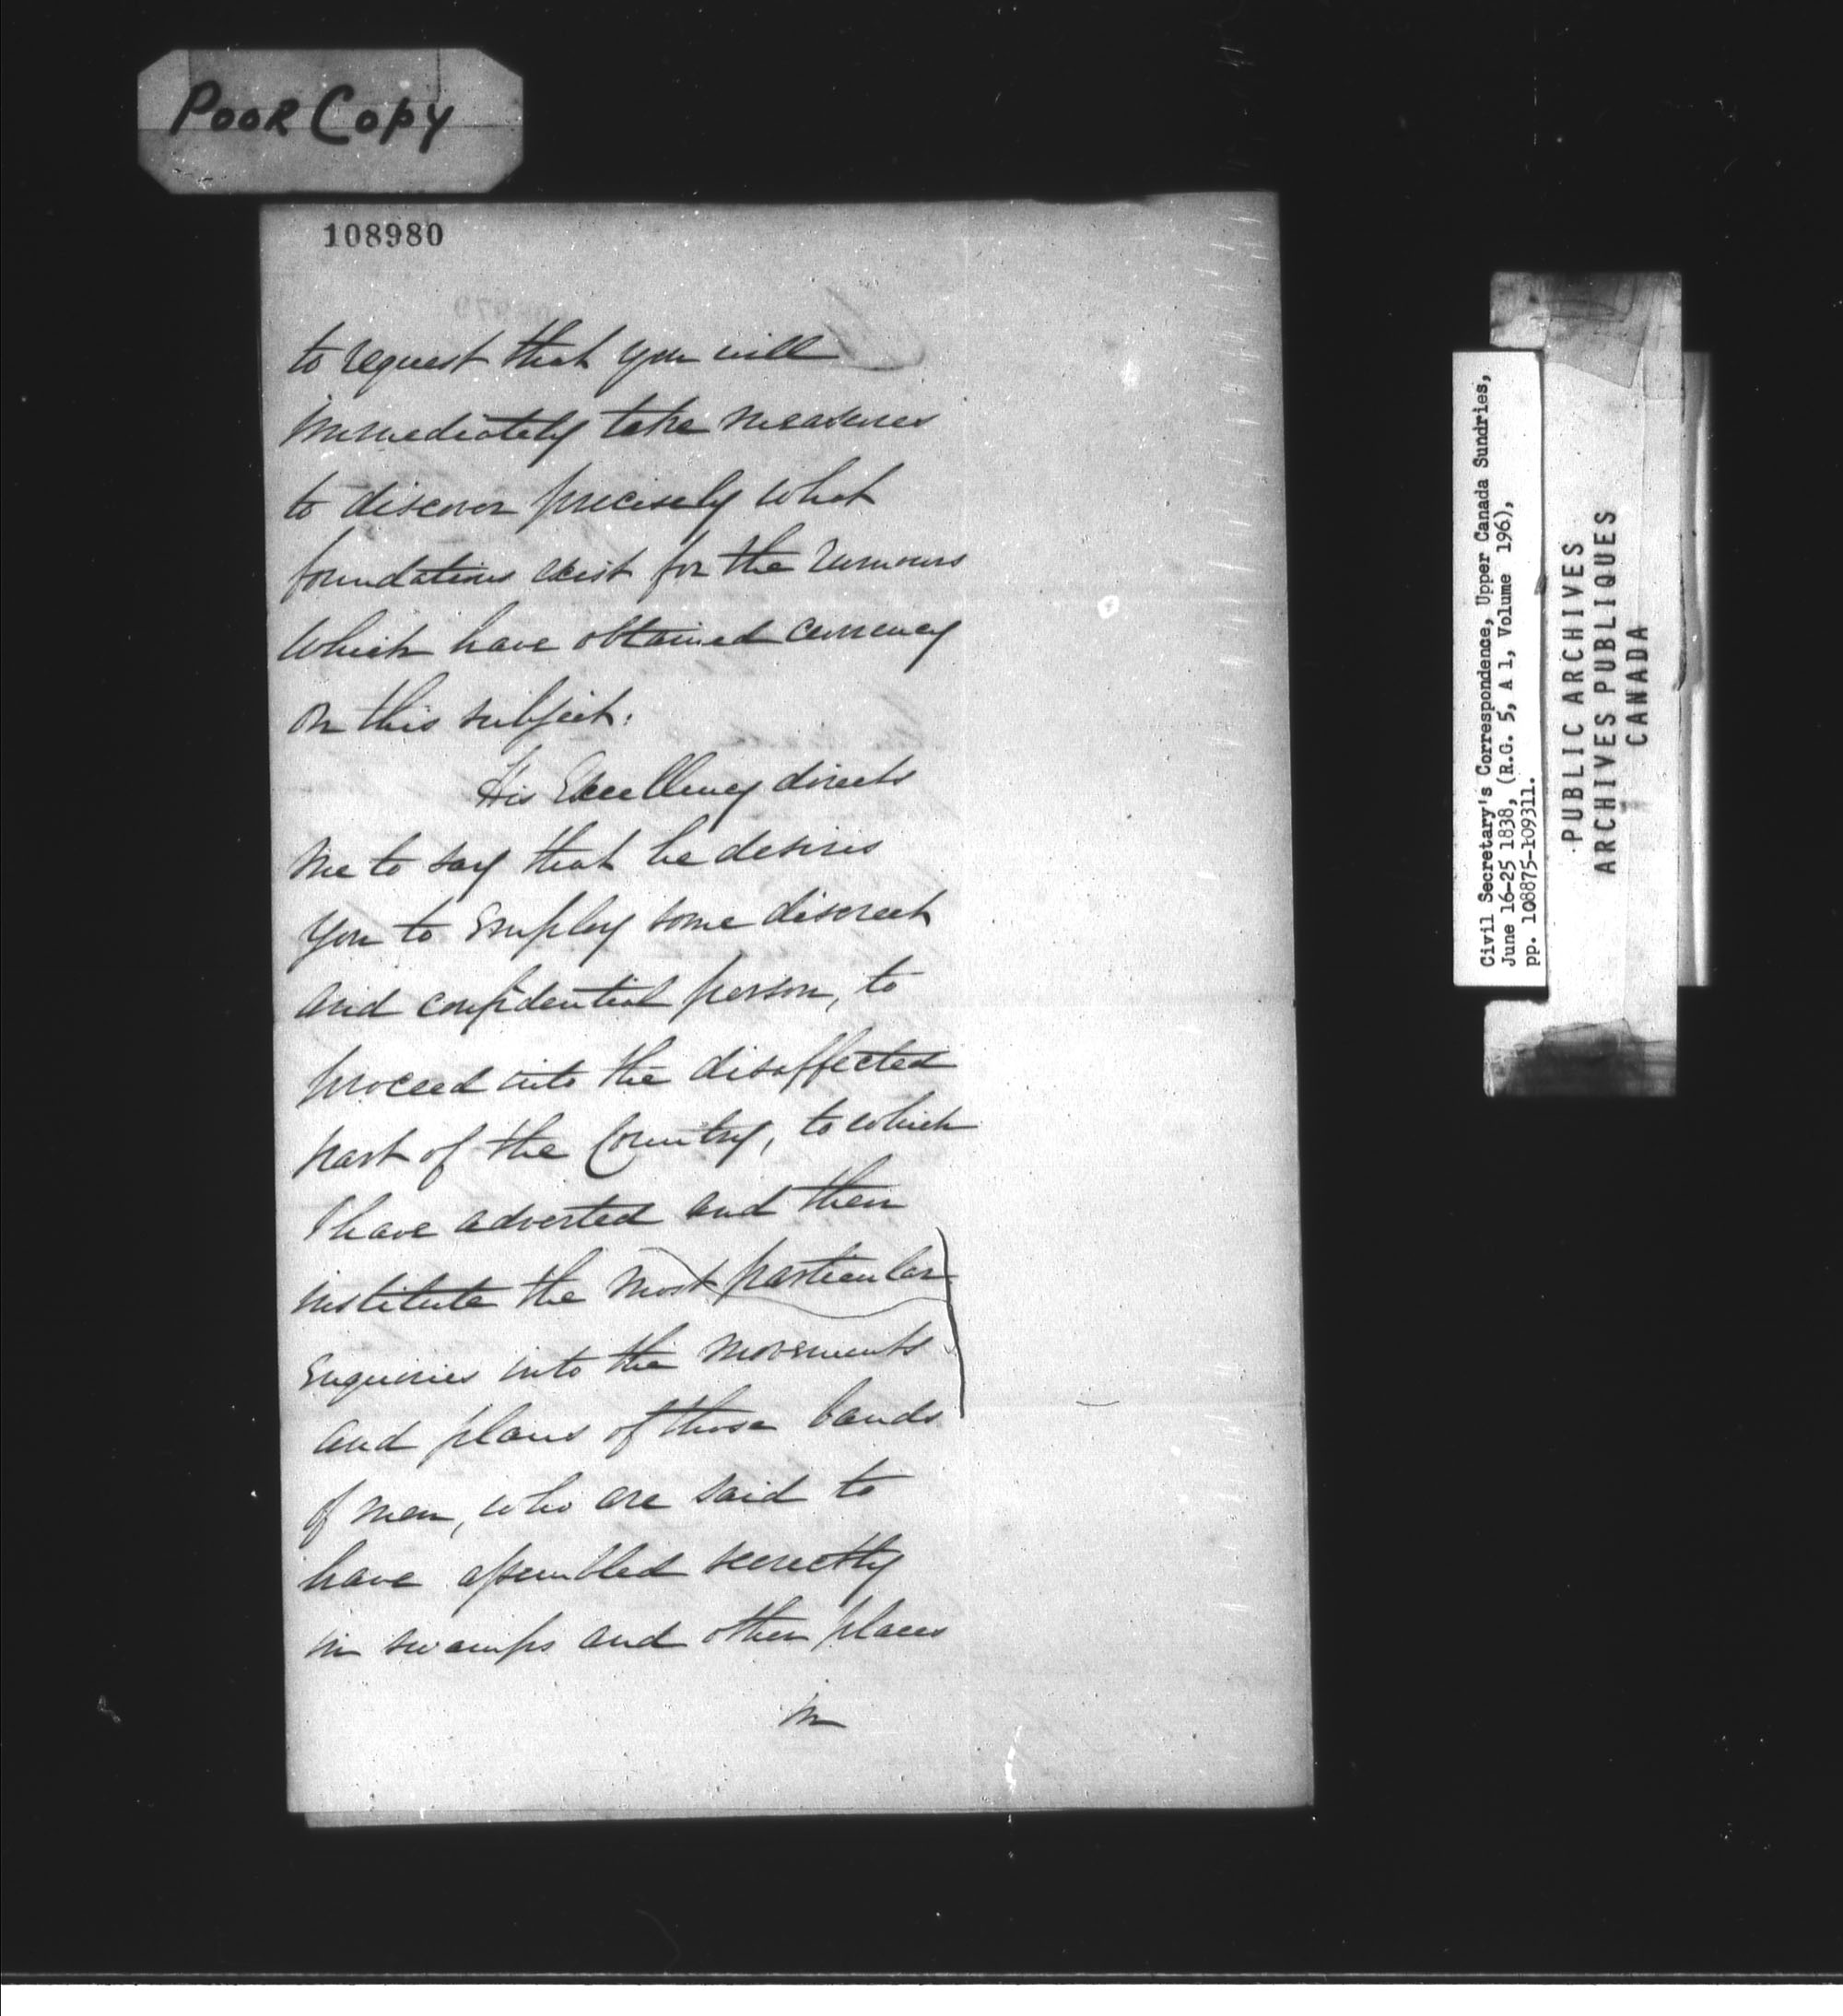 Poor Copy
108980
to request that you will
immediately take measures
to discover precisely what
foundations exist for the rumours
which have obtained currency
on this subject.
His Excellency directs
me to say that he desires
you to employ some discreet
and confidential person, to
proceed into the disaffected
part of the Country, to which
I have adverted and then
institute the most particular
enquiries into the movements
and plans of those bands
of men, who are said to
have assembled secretly
in swamps and other places
in
Civil Secretary's Correspondence, Upper Canada Sundries,
June 16-25 1838, (R.G. 5, A 1, Volume 196),
pp. 108875-109311.
PUBLIC ARCHIVES
ARCHIVES PUBLIQUES
CANADA